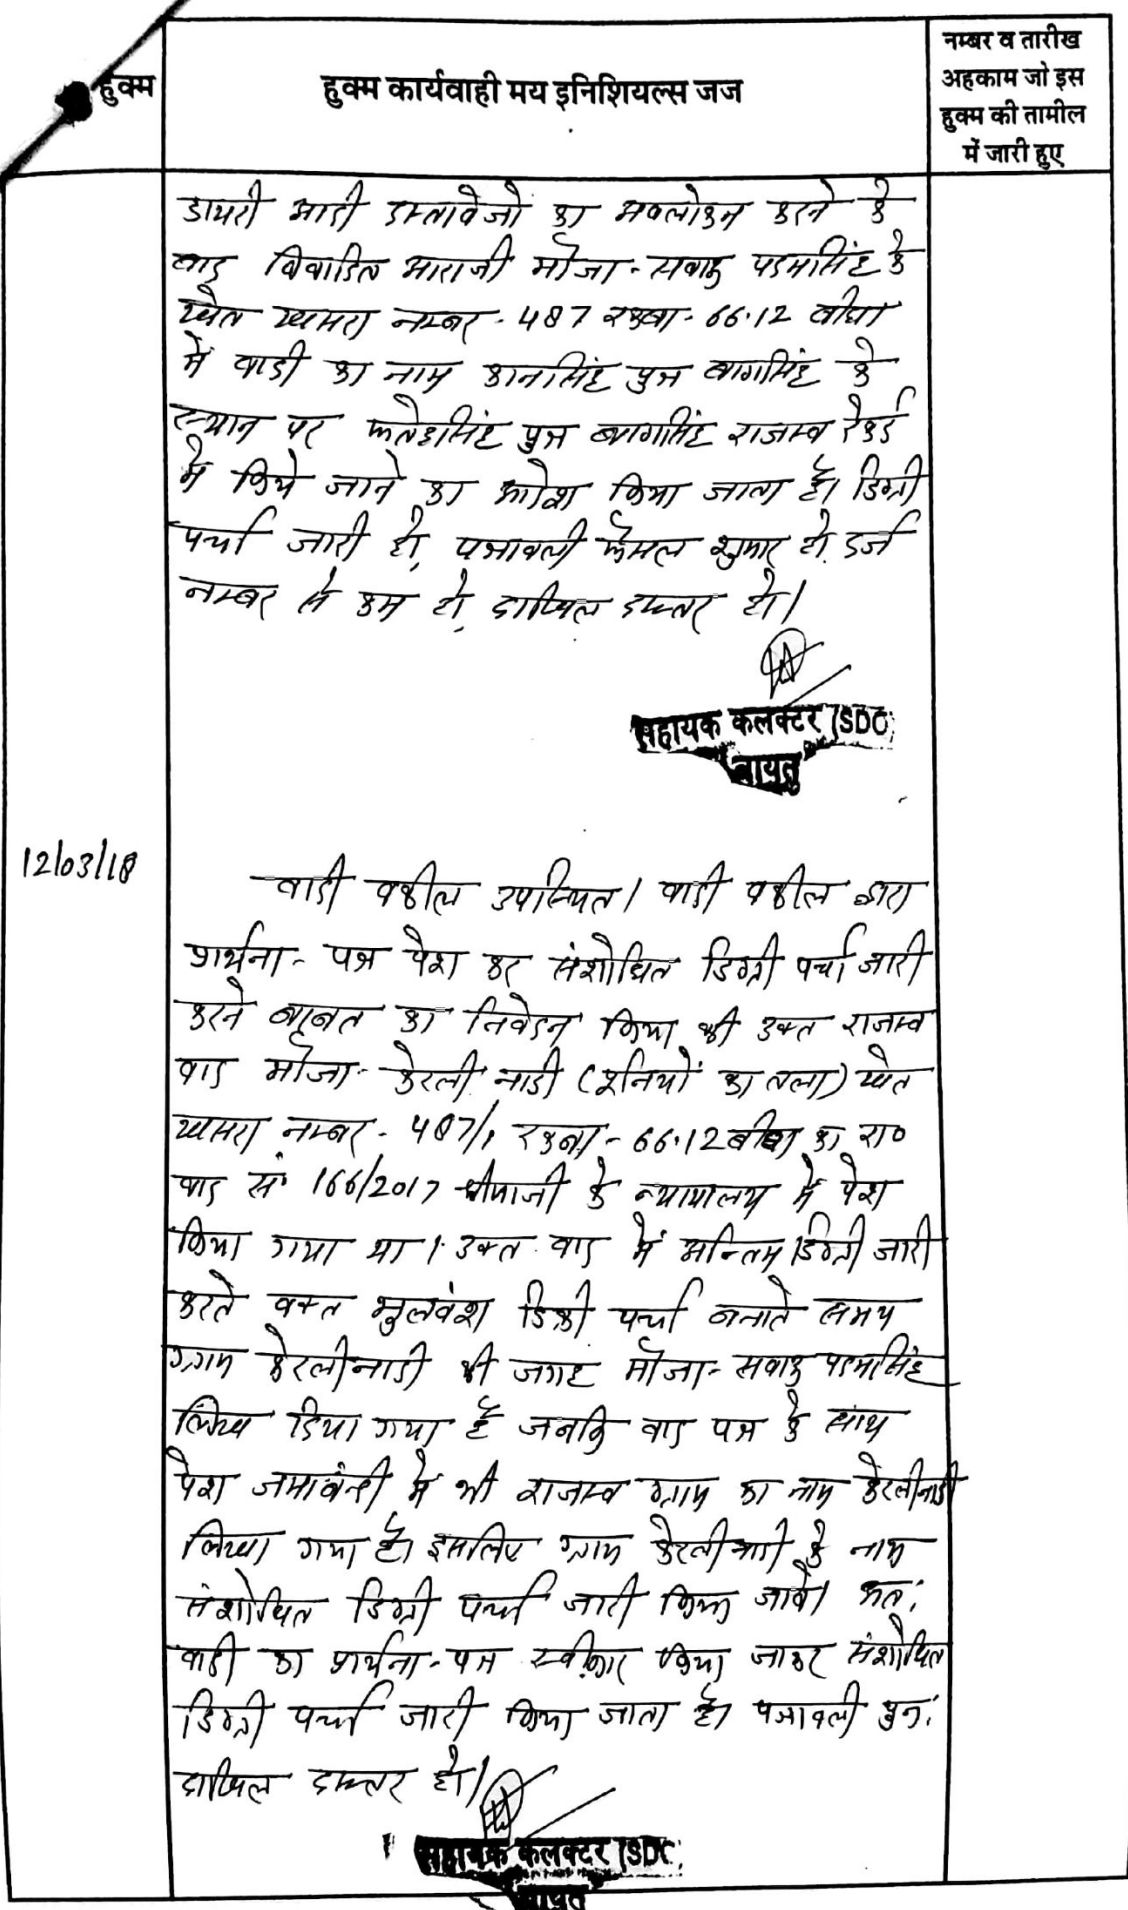 हुक्म
हुक्म कार्यवाही मय इनिशियल्स जज
नम्बर व तारीख
अहकाम जो इस
हुक्म की तामील
में जारी हुए
डायरी आदी दस्तावेजो का अवलोकन करने के
बाद विवादित आराजी मौजा - सवाऊ पदमसिंह के
खेत खसरा नम्बर - 487 रकबा - 66.12 बीघा
में वादी का नाम कानसिंह पुत्र बागसिंह के
स्थान पर फतेहसिंह पुत्र बागसिंह राजस्व रेकर्ड
में किये जाने का आदेश किया जाता है। डिग्री
पर्चा जारी हो, पत्रावली फैसल शुमार हो, दर्ज
नम्बर से कम हो, दाखिल दफ्तर हो।
सहायक कलक्टर (SDO)
बायतु
12/03/18
वादी वकील उपस्थित। वादी वकील द्वारा
प्रार्थना - पत्र पेश कर संशोधित डिग्री पर्चा जारी
करने बाबत का निवेदन किया की उक्त राजस्व
वाद मौजा - केरली नाडी (दुनियों का तला) खेत
खसरा नम्बर - 487/1 रकबा - 66.12 बीघा का रा०
वाद सं 166/2017 श्रीमानजी के न्यायालय में पेश
किया गया था। उक्त वाद में अन्तिम डिग्री जारी
करते वक्त भुलवंश डिक्री पर्चा बनाते समय
ग्राम केरलीनाडी की जगह मौजा - सवाऊ पदमसिंह
लिख दिया गया है जबकि वाद पत्र के साथ
पेश जमाबंन्दी में भी राजस्व ग्राम का नाम केरलीनाडी
लिखा गया है। इसलिए ग्राम केरलीनाडी के नाम
संशोधित डिग्री पर्चा जारी किया जावें। अतः
वादी का प्रार्थना - पत्र स्वीकार किया जाकर संशोधित
डिग्री पर्चा जारी किया जाता है। पत्रावली पुनः
दाखिल दफ्तर हो।
सहायक कलक्टर (SDO)
बायतु